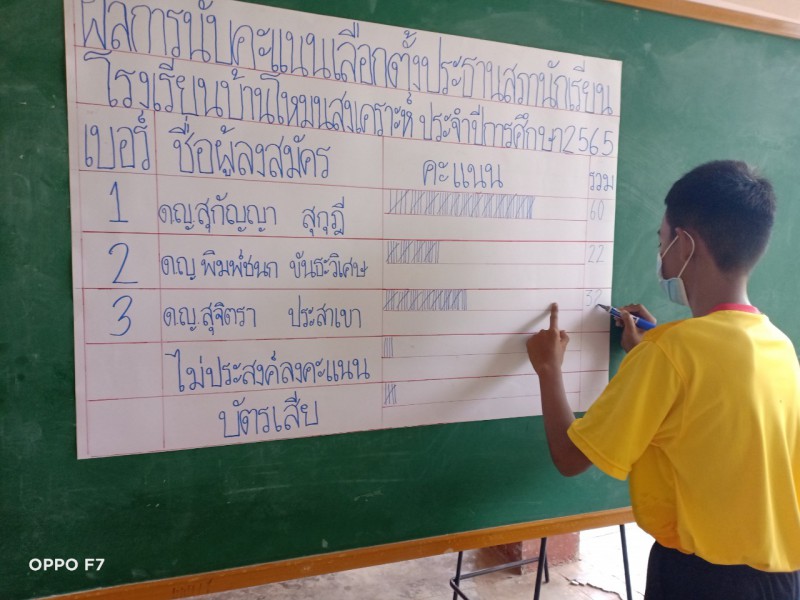 ผลการนับคะแนนเลือกตั้งประธานสภานักเรียน
โรงเรียนบ้านโหมนสงเคราะห์ ประจำปีการศึกษา2565
เบอร์ ชื่อผู้ลงสมัคร คะแนน รวม
1 ดญ.สุกัญญา สุกุฎี 60
2 ดญ.พิมพ์ชนก ขันธะวิเศษ 22
3 ดญ.สุจิตรา ประสาเขา 32
ไม่ประสงค์ลงคะแนน
บัตรเสีย
OPPO F7